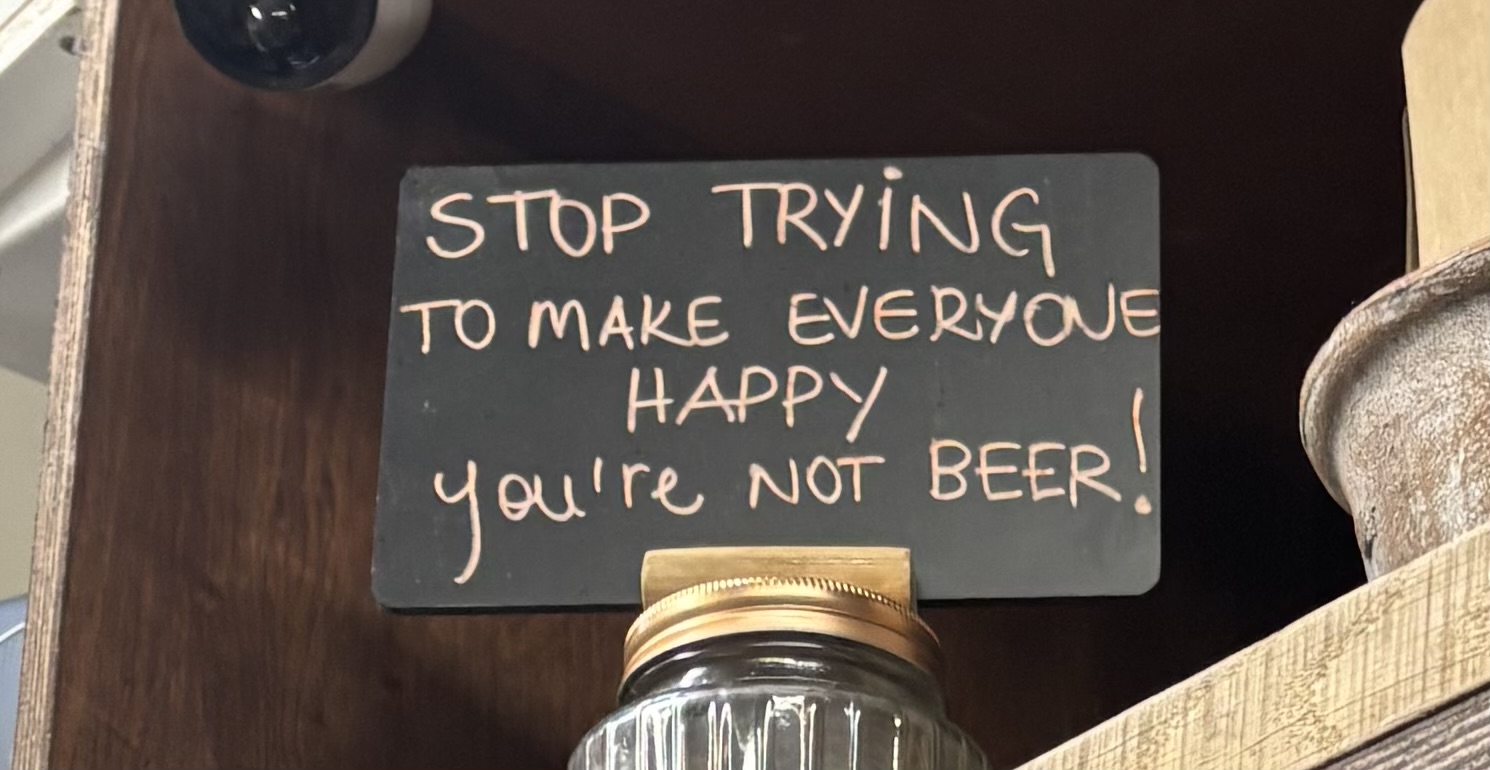 STOP TRYING
TO MAKE EVERYONE
HAPPY
you're NOT BEER!